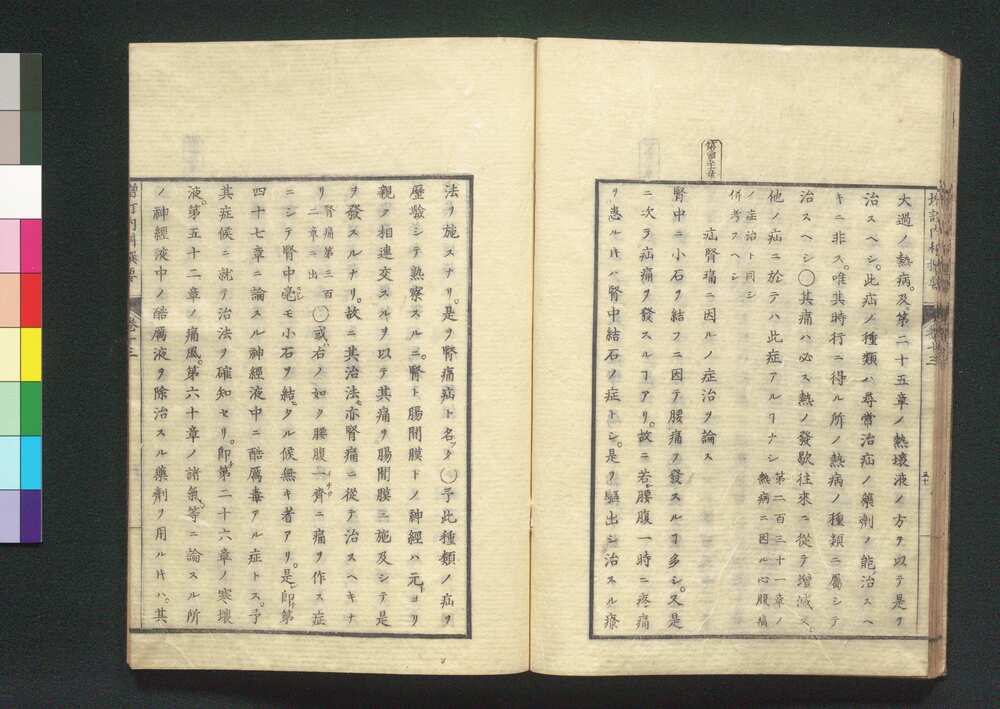 大過ノ熱病。及第二十五章ノ熱壞液ノ方ヲ以テ是ヲ
治スヘシ。此疝ノ種類ハ尋常治疝ノ藥劑ノ能治スヘ
キニ非ス。唯其時行ニ得ル所ノ熱病ノ種類ニ屬シテ
治スヘシ〇其痛ハ必ス熱ノ發歇往來ニ從テ增減ス。
他ノ疝ニ於テハ此症アルヿナシ
第二百三十一章ノ
熱病ニ因ル心腹痛
ノ症治ト同シ
併考スヘシ
疝腎痛ニ因ルノ症治ヲ論ス
腎中ニ小石ヲ結フニ因テ腰痛ヲ發スルヿ多シ。又是
ニ次ラ疝痛ヲ發スルヿアリ。故ニ若腰腹一時ニ疼痛
ヲ患ル𪜈ハ腎中結石ノ症トシ。是ヲ驅出シ治スル療
法ヲ施スナリ。是ヲ腎痛病ト名ク〇予此種類ノ疝ヲ
歷驗シテ熟察スルニ。腎ト腸間膜トノ神經ハ元ヨリ
親ク相連交スルヲ以テ其痛ヲ腸間膜ニ施及シテ是
ヲ發スルナリ。故ニ其治法亦腎痛ニ從テ治スヘキナ
リ
腎痛第三百
二章ニ出
〇或ハ右ノ如ク腰腹一齊ニ痛ヲ作ス症
ニシテ腎中毫モ小石ヲ結タル候無キ者アリ。是即第
四十七章ニ論スル神經液中ニ酷厲毒アル症トス。予
其症候ニ就テ治法ヲ確知セリ。即第二十六章ノ寒壞
液。第五十二章ノ痛風。第六十章ノ諸氣等ニ論スル所
ノ神經液中ノ酷厲液ヲ除治スル藥劑ヲ用ル𪜈ハ。其
卷十三